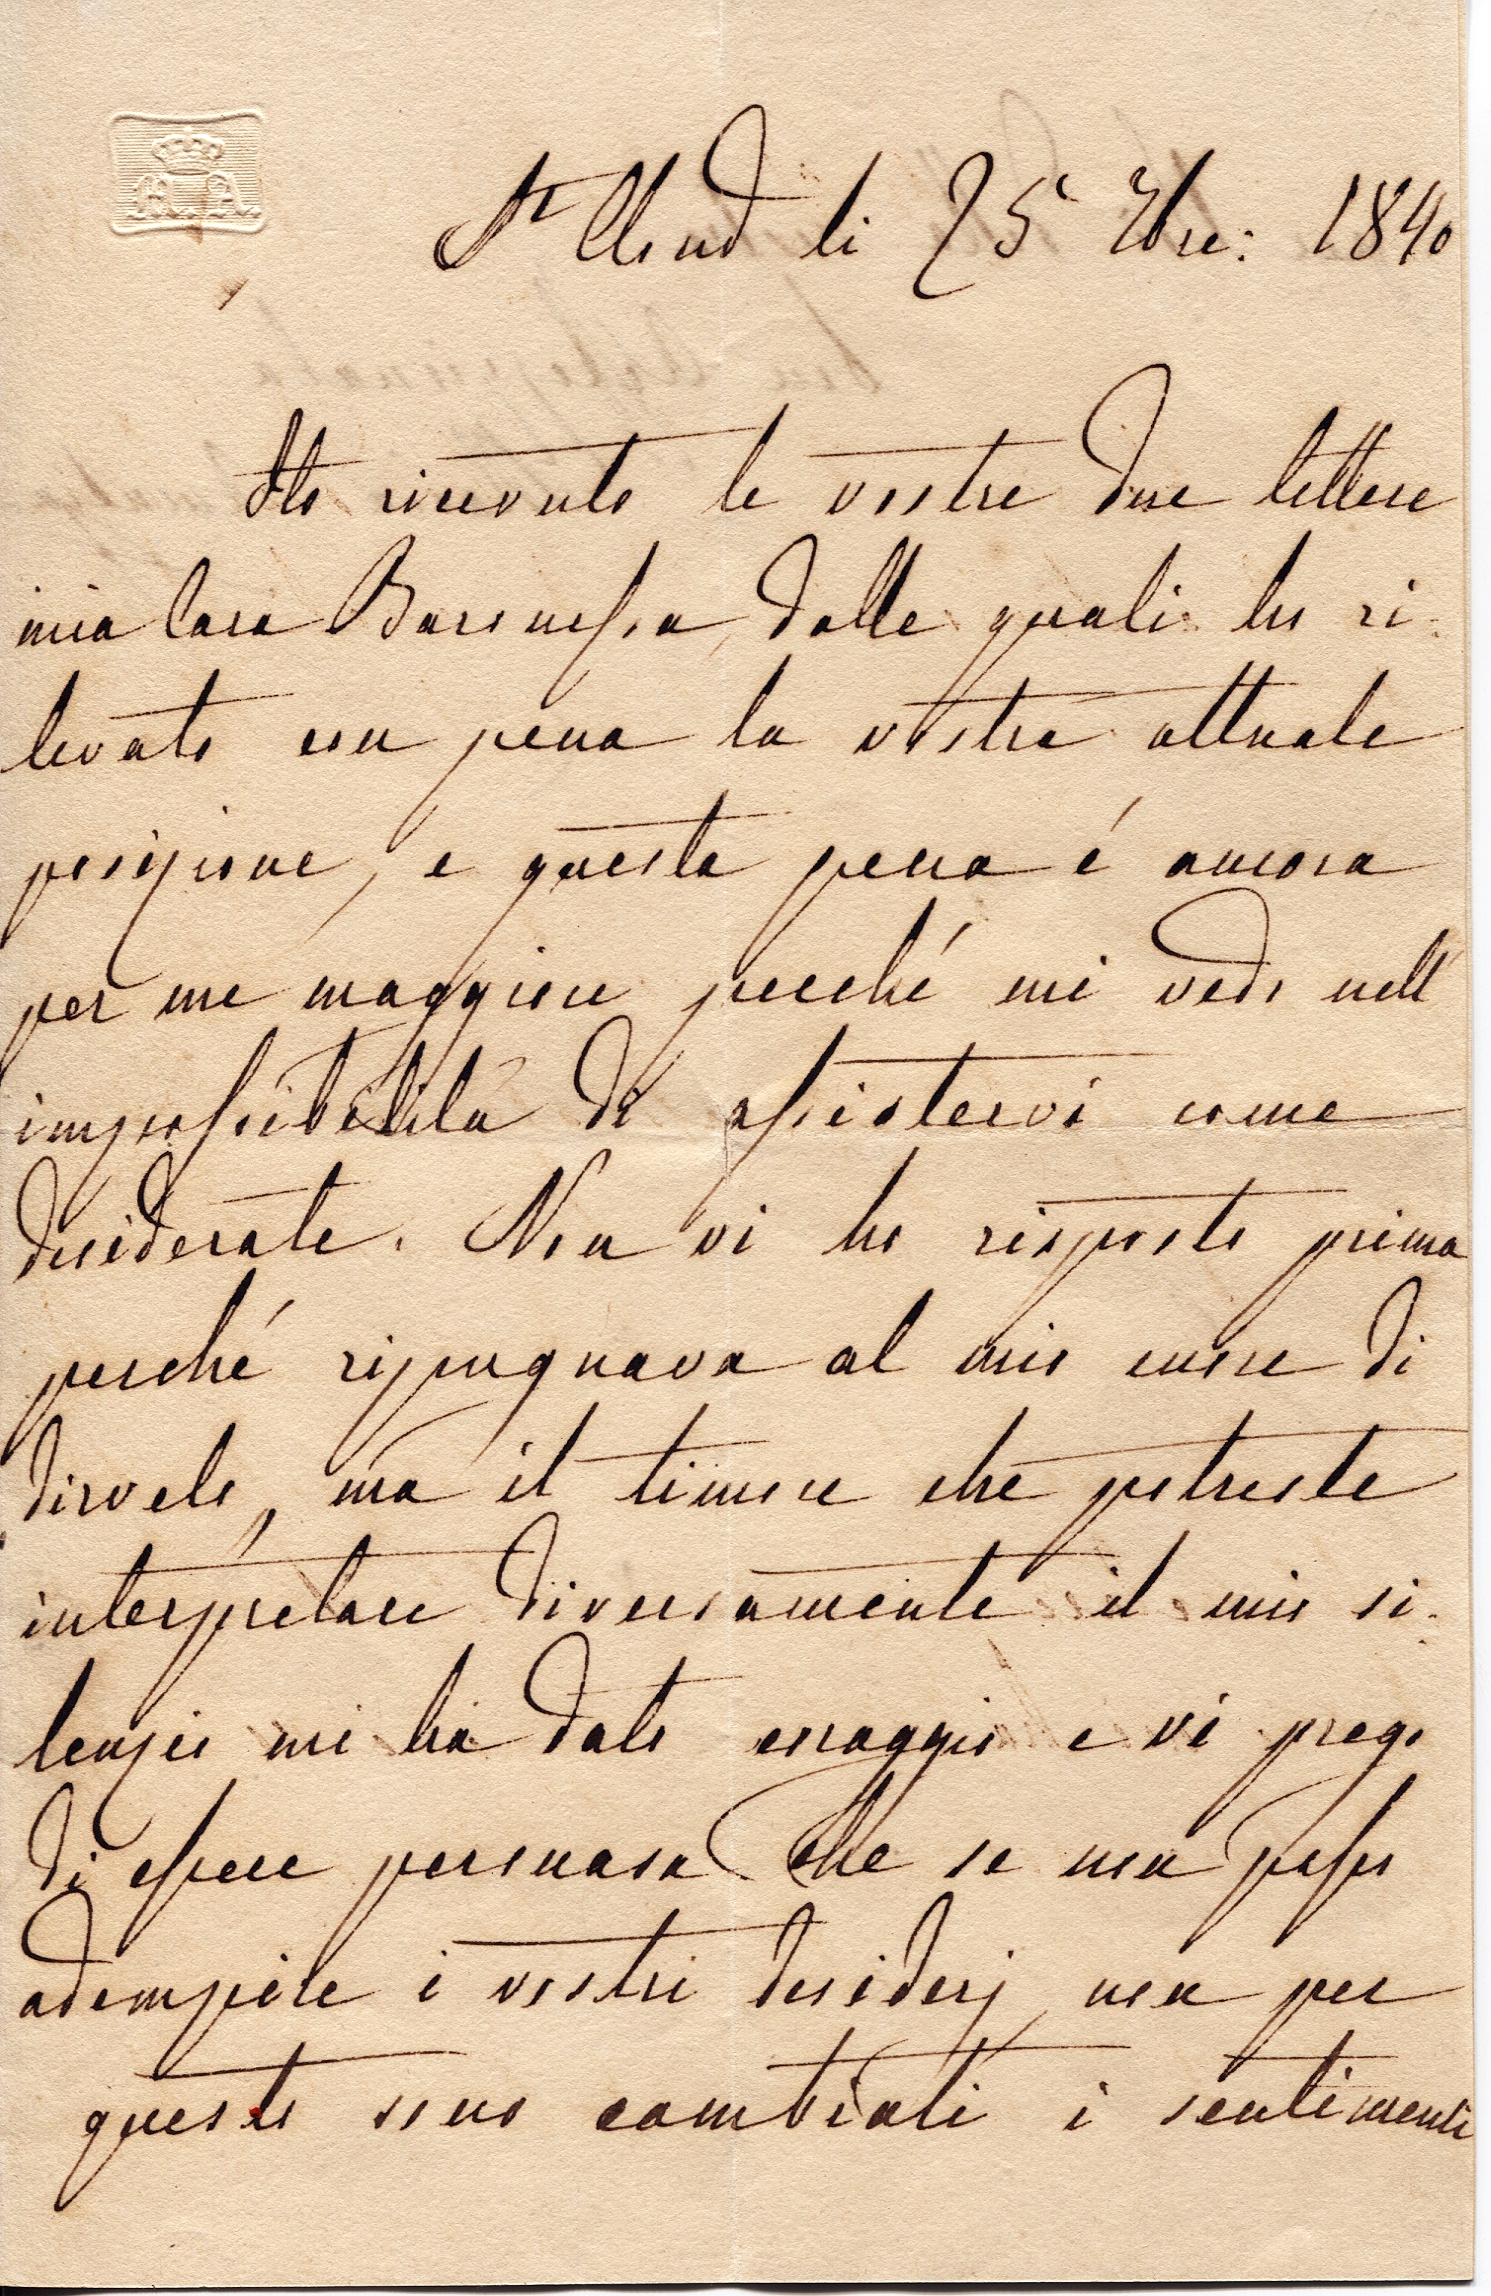 St Cloud li 25 Xbre: 1840
Ho ricevuto le vostre due lettere
mia Cara Baronessa, dalle quali ho ri-
levato con pena la vostra attuale
posizione, e questa pena é ancora
per me maggiore perché mi vedo nell'
impossibilità di assistervi come
desiderate. Non vi ho risposto prima
perché ripugnava al mio cuore di
dirvelo, ma il timore che potreste
interpretare diversamente il mio si-
lenzio mi ha dato coraggio e vi prego
di essere persuasa che se non posso
adempire i vostri desiderj non per
questo sono cambiati i sentimenti